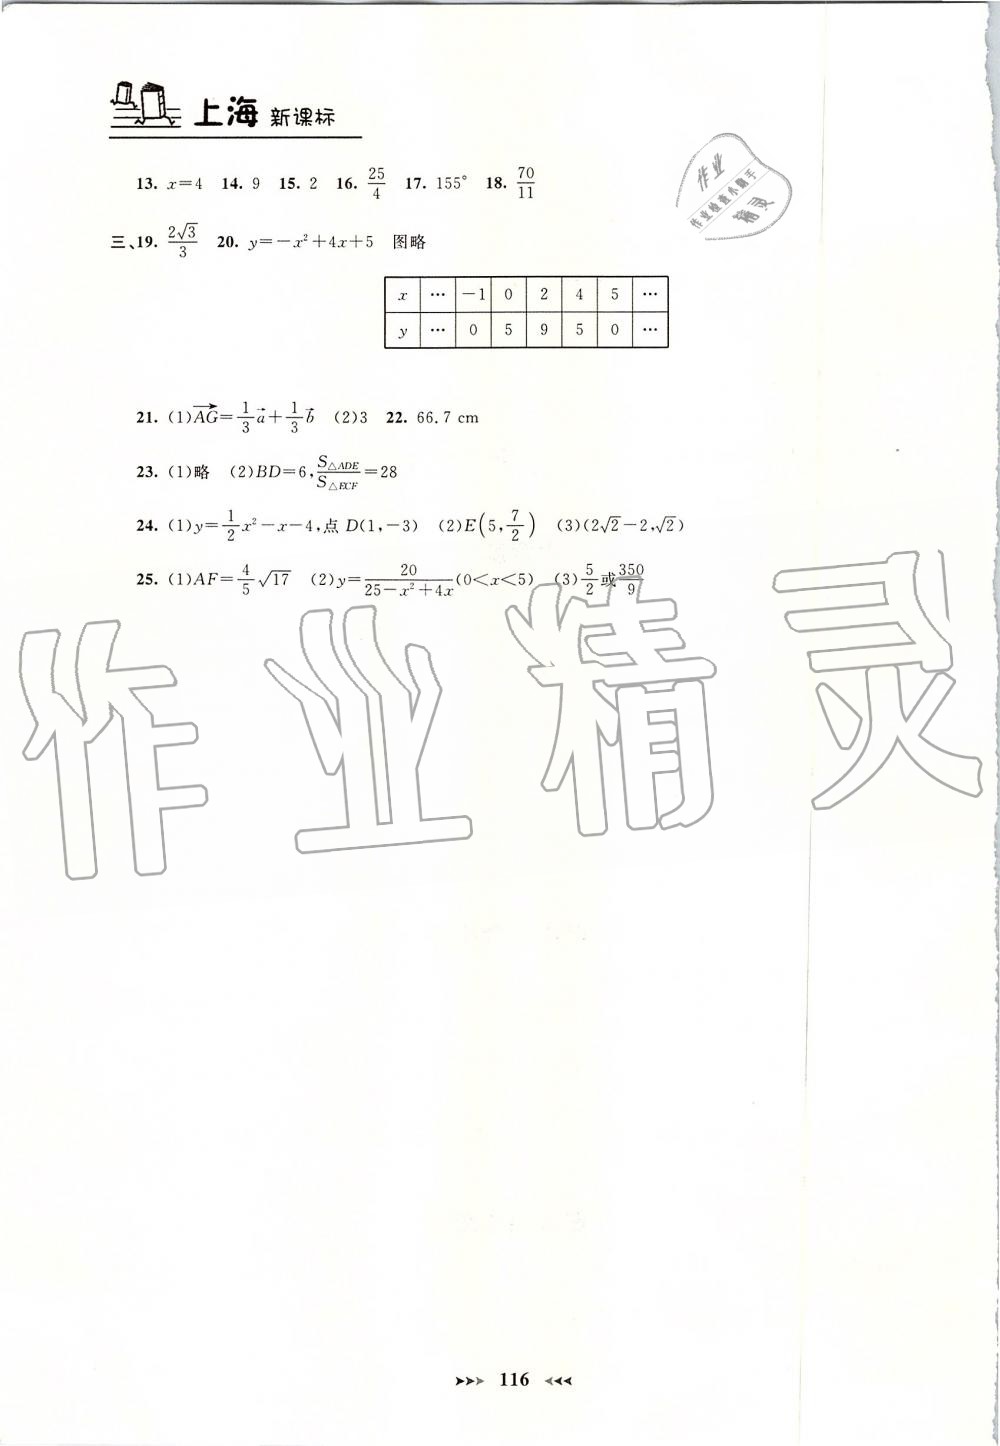 上海 新课标
作业
作业检查小助手
精灵
13. x=4 14. 9 15. 2 16. 25/4 17. 155° 18. 70/11
三、19. 2√3/3 20. y=-x²+4x+5 图略
x … -1 0 2 4 5 …
y … 0 5 9 5 0 …
21. (1)AG⃗=1/3 a⃗+1/3 b⃗ (2)3 22. 66.7 cm
23. (1)略 (2)BD=6, S△ADE/S△ECF=28
24. (1)y=1/2 x²-x-4,点 D(1,-3) (2)E(5, 7/2) (3)(2√2-2,√2)
25. (1)AF=4/5 √17 (2)y=20/(25-x²+4x)(0<x<5) (3)5/2 或 350/9
作业精灵
116